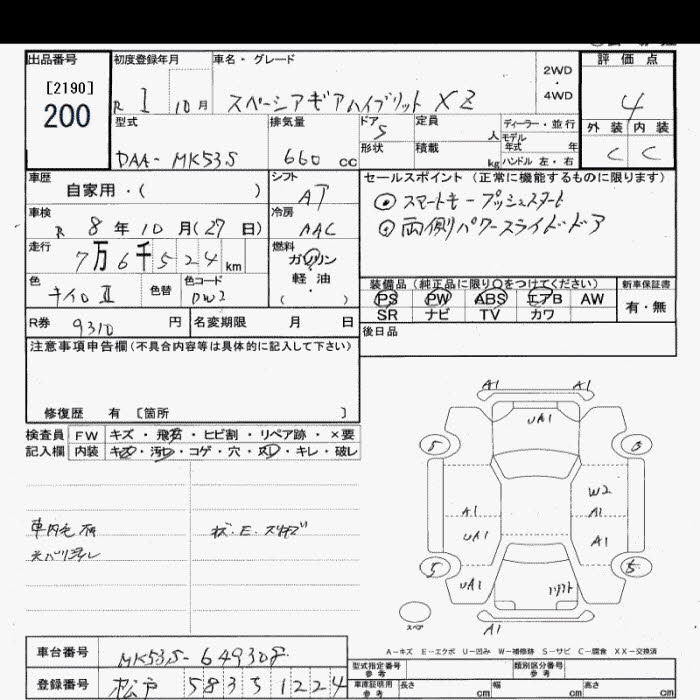 出品番号 初度登録年月 車名・グレード 評価点
[2190] 2WD
200 R 1 10月 スペーシアギアハイブリット XZ 4WD 4
型式 排気量 ドア 5 定員 人 ディーラー・並行 外装 内装
DAA- MK53S 660 cc 形状 積載 kg モデル年式 年 ハンドル 左・右 C C
車歴 自家用・( ) シフト AT セールスポイント(正常に機能するものに限ります)
車検 R 8年10月(27日) 冷房 AAC スマートキー プッシュスタート
走行 7万6千524km 燃料 ガソリン 両側パワースライドドア
軽油
( ・ )
色 キイロⅡ 色替 色コード DW2 装備品(純正品に限り○をつけてください) 新車保証書
PS PW ABS エアB AW 有・無
R券 9310 円 名変期限 月 日 SR ナビ TV カワ
注意事項申告欄(不具合内容等は具体的に記入して下さい) 後日品
修復歴 有 [箇所 ]
検査員 FW キズ・飛石・ヒビ割・リペア跡・×要
記入欄 内装 キズ・汚レ・コゲ・穴・スレ・キレ・破レ
A1 A1
UA1
5 6
W2
A1 A1
UA1 A1
5 5
UA1
スペア
A1
A-キズ E-エクボ U-凹み W-補修跡 S-サビ C-腐食 XX-交換済
車台番号 MK53S-649308 型式指定番号 参考 類別区分番号 参考
登録番号 松戸 583 ち 1224 車庫証明用 参考 長さ cm 幅 cm 高さ cm